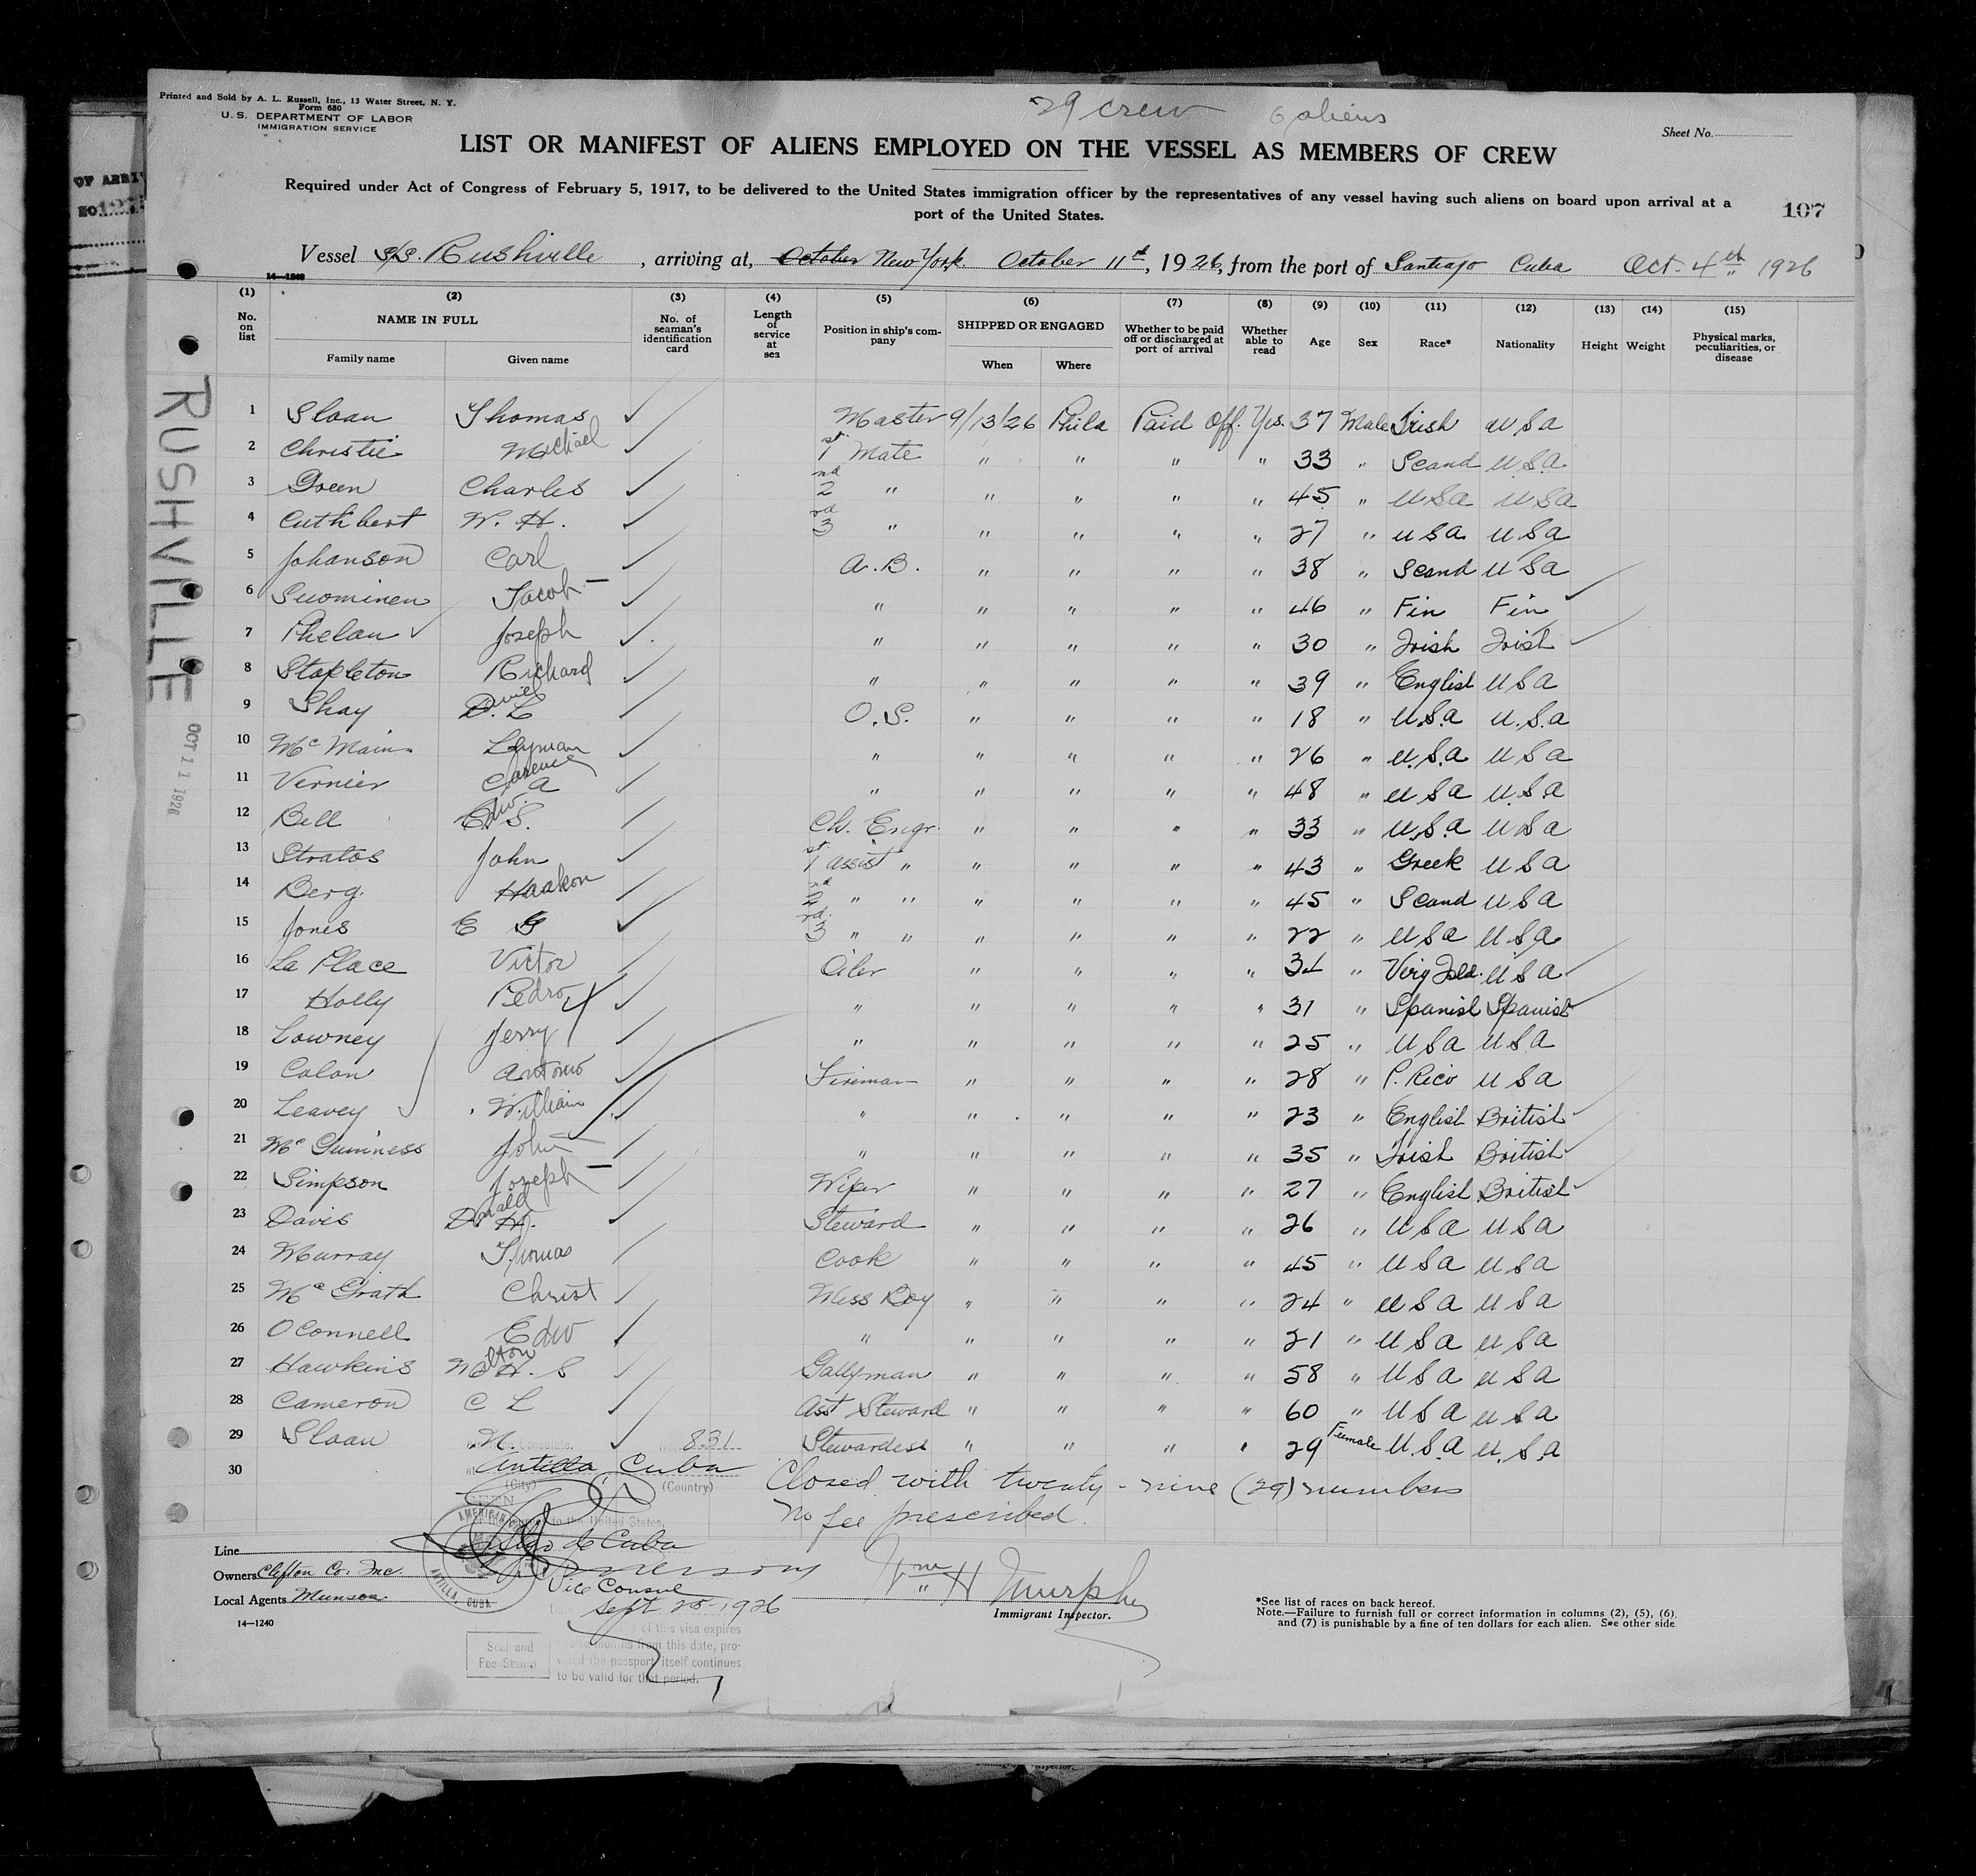 Printed and Sold by A. L. Russell, Inc., 13 Water Street, N. Y.
Form 680
U. S. DEPARTMENT OF LABOR
IMMIGRATION SERVICE
29 crew 6 aliens
Sheet No.
LIST OR MANIFEST OF ALIENS EMPLOYED ON THE VESSEL AS MEMBERS OF CREW
Required under Act of Congress of February 5, 1917, to be delivered to the United States immigration officer by the representatives of any vessel having such aliens on board upon arrival at a
port of the United States.
107
OF ARRI
NO. 127
Vessel S/S. Rushville, arriving at, October New York October 11th, 1926, from the port of Santiago Cuba Oct. 4th 1926
14—1240
(1) (2) (3) (4) (5) (6) (7) (8) (9) (10) (11) (12) (13) (14) (15)
No. on list NAME IN FULL Family name Given name No. of seaman's identification card Length of service at sea Position in ship's company SHIPPED OR ENGAGED When Where Whether to be paid off or discharged at port of arrival Whether able to read Age Sex Race* Nationality Height Weight Physical marks, peculiarities, or disease
RUSHVILLE
OCT 11 1926
1 Sloan Thomas Master 9/13/26 Phila Paid Off. Yes. 37 Male Irish USA
2 Christie Michael 1st Mate " " " " 33 " Scand U.S.A
3 Green Charles 2nd " " " " " 45 " USA USA
4 Cuthbert W. H. 3rd " " " " " 27 " USA USA
5 Johanson Carl A. B. " " " " 38 " Scand USA
6 Suominen Jacob " " " " " 46 " Fin Fin
7 Phelan Joseph " " " " " 30 " Irish Irish
8 Stapleton Richard " " " " " 39 " English USA
9 Shay D. L O. S. " " " " 18 " U.S.A U.S.A
10 McMains Lyman " " " " " 26 " U.S.A USA
11 Vernier Clarence A " " " " " 48 " USA U.S.A
12 Bell Edw. S. Ch. Engr. " " " " 33 " U.S.A USA
13 Stratos John 1st assist " " " " " 43 " Greek USA
14 Berg. Haakon 2nd " " " " " " 45 " Scand USA
15 Jones E G 3rd " " " " " " 22 " USA USA
16 La Place Victor Oiler " " " " 31 " Virg Isld. USA
17 Holly Pedro " " " " " 31 " Spanish Spanish
18 Lowney Jerry " " " " " 25 " USA USA
19 Colon Antonio Fireman " " " " 28 " P. Rico USA
20 Leavey William " " " " " 23 " English British
21 McGuinness John " " " " " 35 " Irish British
22 Simpson Joseph Wiper " " " " 27 " English British
23 Davis Donald H. Steward " " " " 26 " USA USA
24 Murray Thomas Cook " " " " 45 " USA USA
25 McGrath Christ Mess Boy " " " " 24 " USA USA
26 OConnell Edw " " " " " 21 " USA USA
27 Hawkins H. S Gallyman " " " " 58 " USA USA
28 Cameron C L Asst Steward " " " " 60 " USA USA
29 Sloan N. Stewardess " " " " 29 Female U.S.A U.S.A
30
831
Antilla Cuba
(City) (Country)
Closed with twenty-nine (29) numbers
No fee prescribed.
SEEN
to the United States,
de Cuba
Line
Owners Clifton Co. Inc.
Local Agents Munson
14—1240
AMERICAN
ANTILLA, CUBA
Vice Consul
Sept 25-1926
of this visa expires
from this date, pro-
vided the passport itself continues
to be valid for that period.
Seal and
Fee Stamp
Wm H Murphy
Immigrant Inspector.
*See list of races on back hereof.
Note.—Failure to furnish full or correct information in columns (2), (5), (6),
and (7) is punishable by a fine of ten dollars for each alien. See other side